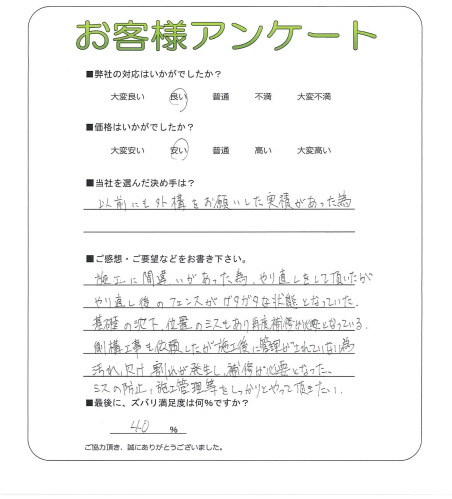 お客様アンケート
■弊社の対応はいかがでしたか？
大変良い 良い 普通 不満 大変不満
■価格はいかがでしたか？
大変安い 安い 普通 高い 大変高い
■当社を選んだ決め手は？
以前にも外構をお願いした実績があった為
■ご感想・ご要望などをお書き下さい。
施工に間違いがあった為、やり直しをして頂いたが
やり直し後のフェンスがガタガタな状態となっていた。
基礎の沈下、位置のミスもあり再度補修が必要となっている。
側構工事も依頼したが施工後に管理がされていない為
汚れ、欠け、割れが発生し、補修が必要となった。
ミスの防止、施工管理等をしっかりとやって頂きたい。
■最後に、ズバリ満足度は何％ですか？
40 ％
ご協力頂き、誠にありがとうございました。